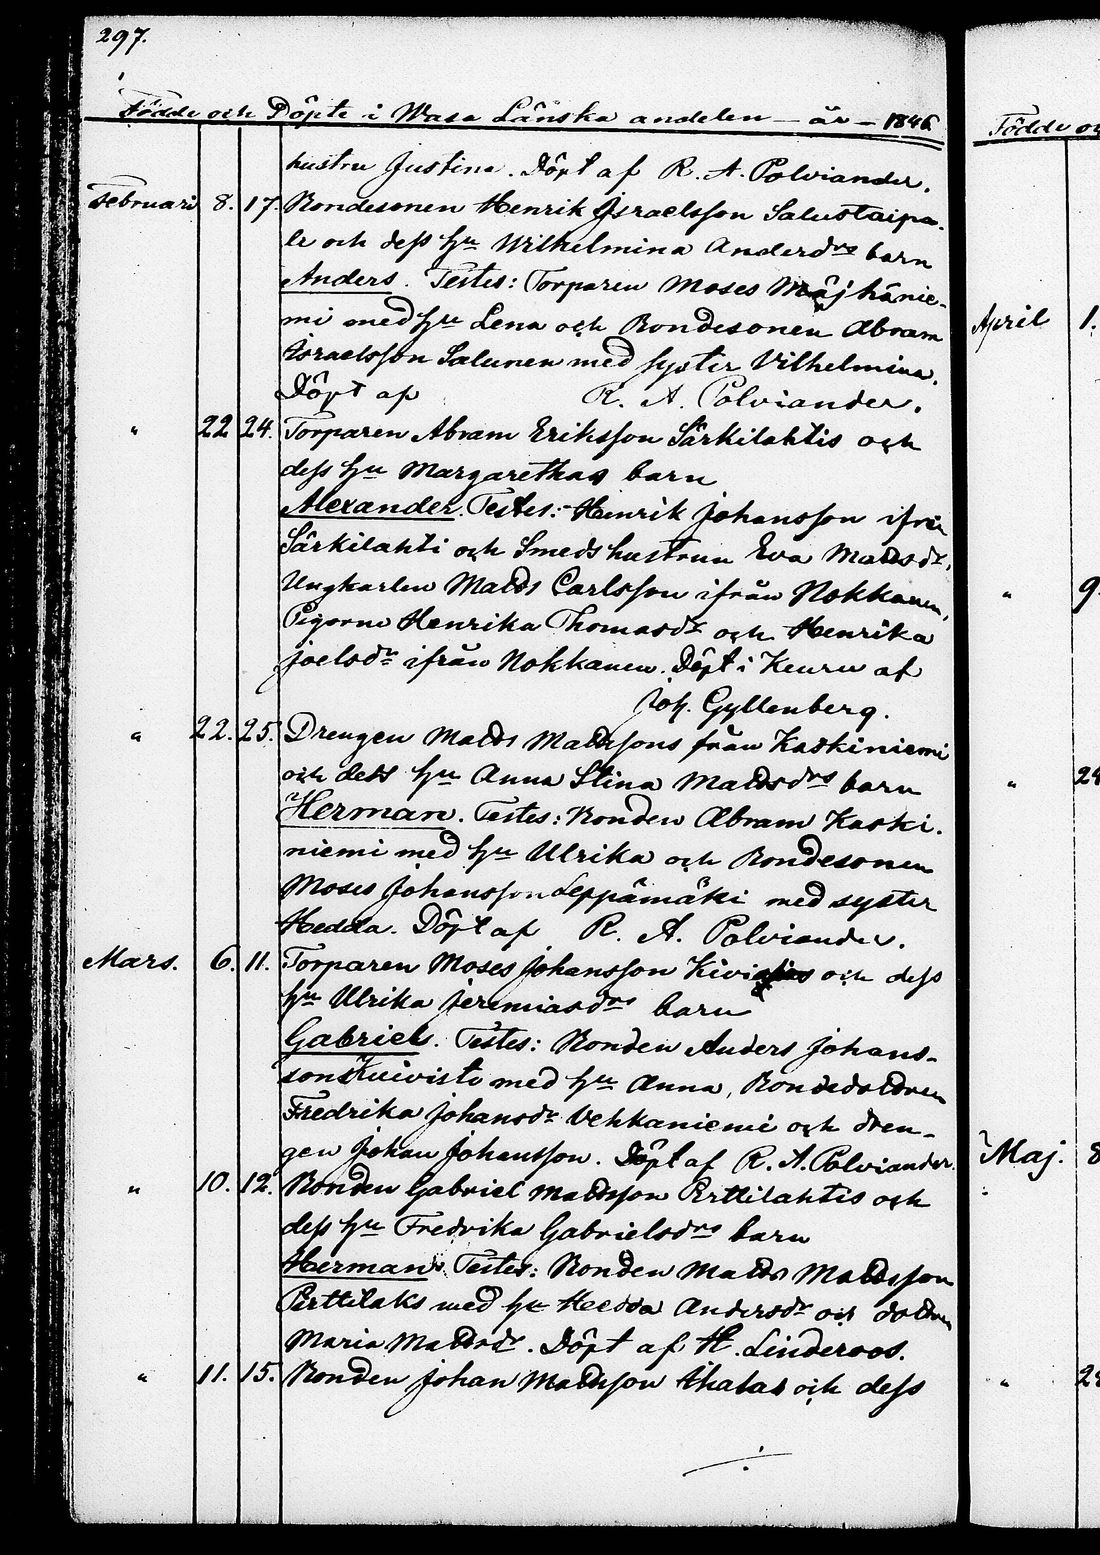 297.
Födde och Döpte i Wasa Länska andelen – år – 1846
hustru Justina. Döpt af R. A. Polviander.
Februari 8. 17. Bondesonen Henrik Israelsson Salustaipa-
le och dess hu Wilhelmina Andersdrs barn
Anders. Testes: Torparen Moses Mäjhänie-
mi med hu Lena och Bondesonen Abram
Israelsson Salunen med syster Vilhelmina.
Döpt af R. A. Polviander.
" 22 24. Torparen Abram Eriksson Särkilahtis och
dess hu Margarethas barn
Alexander. Testes: Henrik Johansson ifrån
Särkilahti och Smedshustrun Eva Matsdr,
Ungkarlen Matts Carlsson ifrån Nokkanen,
Pigorna Henrika Thomasdr och Henrika
Joelsdr ifrån Nokkanen. Döpt i Keuru af
Joh. Gyllenberg.
" 22. 25. Drengen Matts Mattssons från Kaskiniemi
och dess hu Anna Stina Mattsdrs barn
Herman. Testes: Bonden Abram Kaski-
niemi med hu Ulrika och Bondesonen
Moses Johansson Leppämäki med syster
Hedda. Döpt af R. A. Polviander.
Mars. 6. 11. Torparen Moses Johansson och dess
hu Ulrika Jeremiasdrs barn
Gabriel. Testes: Bonden Anders Johans-
son Kuivisto med hu Anna, Bondedottren
Fredrika Johansdr Vehkaniemi och dren-
gen Johan Johansson. Döpt af R. A. Polviander.
" 10. 12. Bonden Gabriel Mattsson Perttilahtis och
dess hu Fredrika Gabrielsdrs barn
Herman. Testes: Bonden Matts Mattsson
Perttilaks med hu Hedda Andersdr och dottren
Maria Mattsdr. Döpt af H. Linderoos.
" 11. 15. Bonden Johan Mattsson Ahalas och dess
Födde oc
April 1.
" 9.
" 28
Maj. 8
" 28